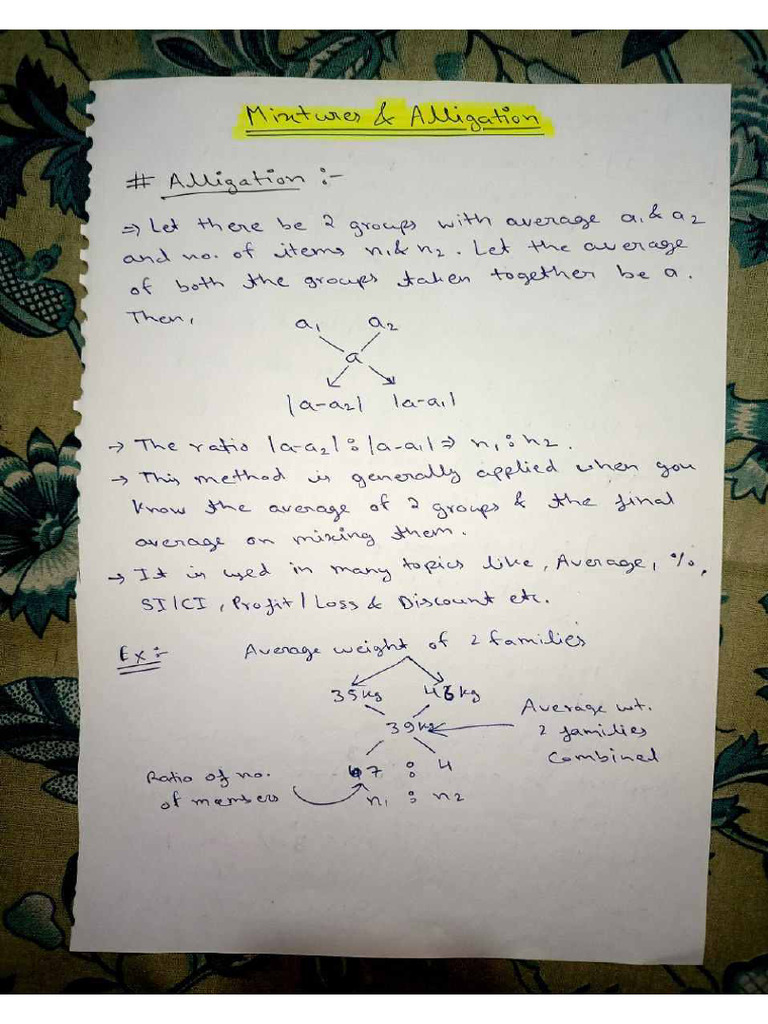 Mixtures & Alligation
# Alligation :-
⇒ Let there be 2 groups with average a₁ & a₂
and no. of items n₁ & n₂. Let the average
of both the groups taken together be a.
Then,
a₁ a₂
a
|a-a₂| |a-a₁|
→ The ratio |a-a₂| : |a-a₁| ⇒ n₁ : n₂.
→ This method is generally applied when you
know the average of 2 groups & the final
average on mixing them.
→ It is used in many topics like, Average, %,
SI/CI, Profit/Loss & Discount etc.
Ex:- Average weight of 2 families
35kg 46kg
39kg
Average wt.
2 families
Combined
7 : 4
n₁ : n₂
Ratio of no.
of members